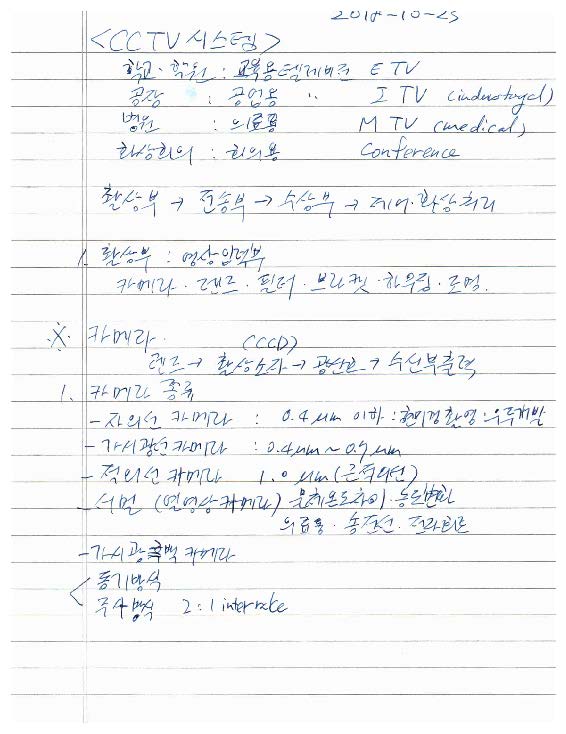 2018-10-25
<CCTV 시스템>
학교·학원 : 교육용텔레비전 E TV
공장 : 공업용 〃 I TV (industrycl)
병원 : 의료용 M TV (medical)
화상회의 : 회의용 Conference
촬상부 → 전송부 → 수상부 → 제어·화상처리
1. 촬상부 : 영상입력부
카메라·렌즈·필터·브라켓·하우징·조명.
※ 카메라.
(CCD)
렌즈 → 촬상소자 → → 수신부출력
1. 카메라 종류
- 자외선 카메라 : 0.4 μm 이하 : 현미경촬영·우주개발
- 가시광선카메라 : 0.4μm ~ 0.7μm
- 적외선 카메라 1.0 μm (근적외선)
- (열영상카메라) 물체온도차이·
의료용·송전선·
- 가시광 흑백 카메라
동기방식
주사방식 2:1 interrace